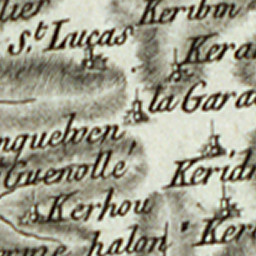 Keribin
s.t Luças
Kera
la Gara
nquelven
Guenolle
Kerid
Kerhou
halon
Ker